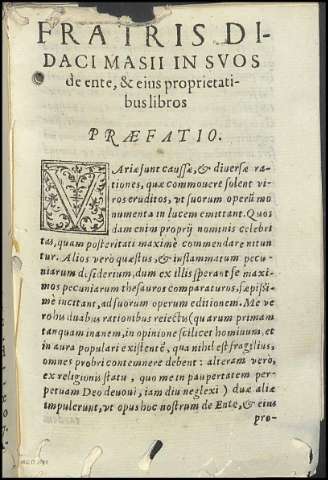 FRATRIS DI-
DACI MASII IN SVOS
de ente, & eius proprietati-
bus libros
PRÆFATIO.
VAriæ sunt caussæ, & diuersæ ra-
tiones, quæ commouere solent vi-
ros eruditos, vt suorum operũ mo
numenta in lucem emittant. Quos
dam enim proprij nominis celebri
tas, quam posteritati maximè commendare nitun
tur. Alios verò quæstus, & inflammatum pecu-
niarum desiderium, dum ex illis sperant se maxi-
mos pecuniarum thesauros comparaturos, sæpissi-
me incitant, ad suorum operum editionem. Me ve
rò his duabus rationibus reiectis (quarum primam
tanquam inanem, in opinione scilicet hominum, et
in aura populari existentẽ, qua nihil est fragilius,
omnes probri contemnere debent: alteram verò,
ex religionis statu, quo me in paupertatem per-
petuam Deo deuoui, iam diu neglexi) duæ aliæ
impulerunt, vt opus hoc nostrum de Ente, & eius
pro-